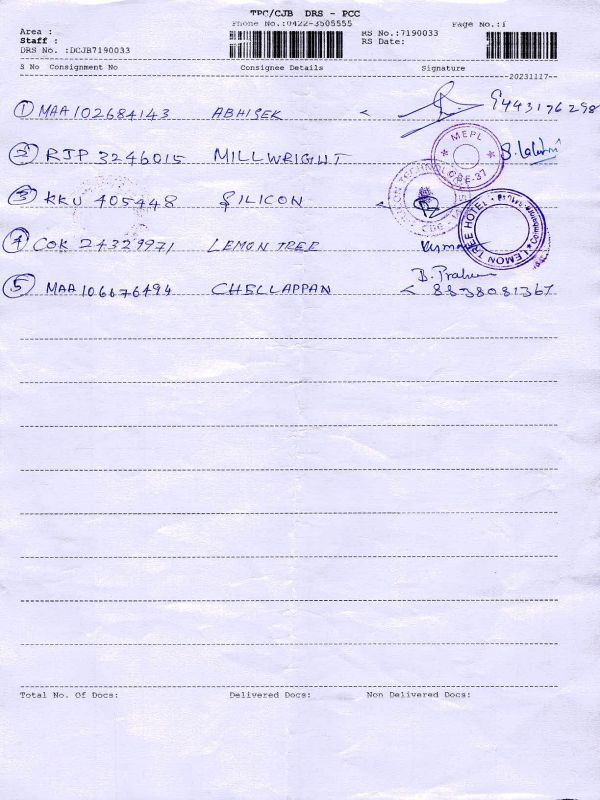 TPC/CJB DRS - PCC
Phone No.:0422-3505555 Page No.:1
Area : RS No.:7190033
Staff : RS Date:
DRS No. :DCJB7190033
S No Consignment No Consignee Details Signature
20231117
1 MAA102684143 ABHISEK 9443176298
2 RJP 3246015 MILLWRIGHT
MEPL CBE-37
3 KKU 405448 SILICON
4 COK 24329971 LEMON TREE Kumar
LEMON TREE HOTEL Coimbatore
5 MAA106676494 CHELLAPPAN 8838081367
Total No. Of Docs: Delivered Docs: Non Delivered Docs: